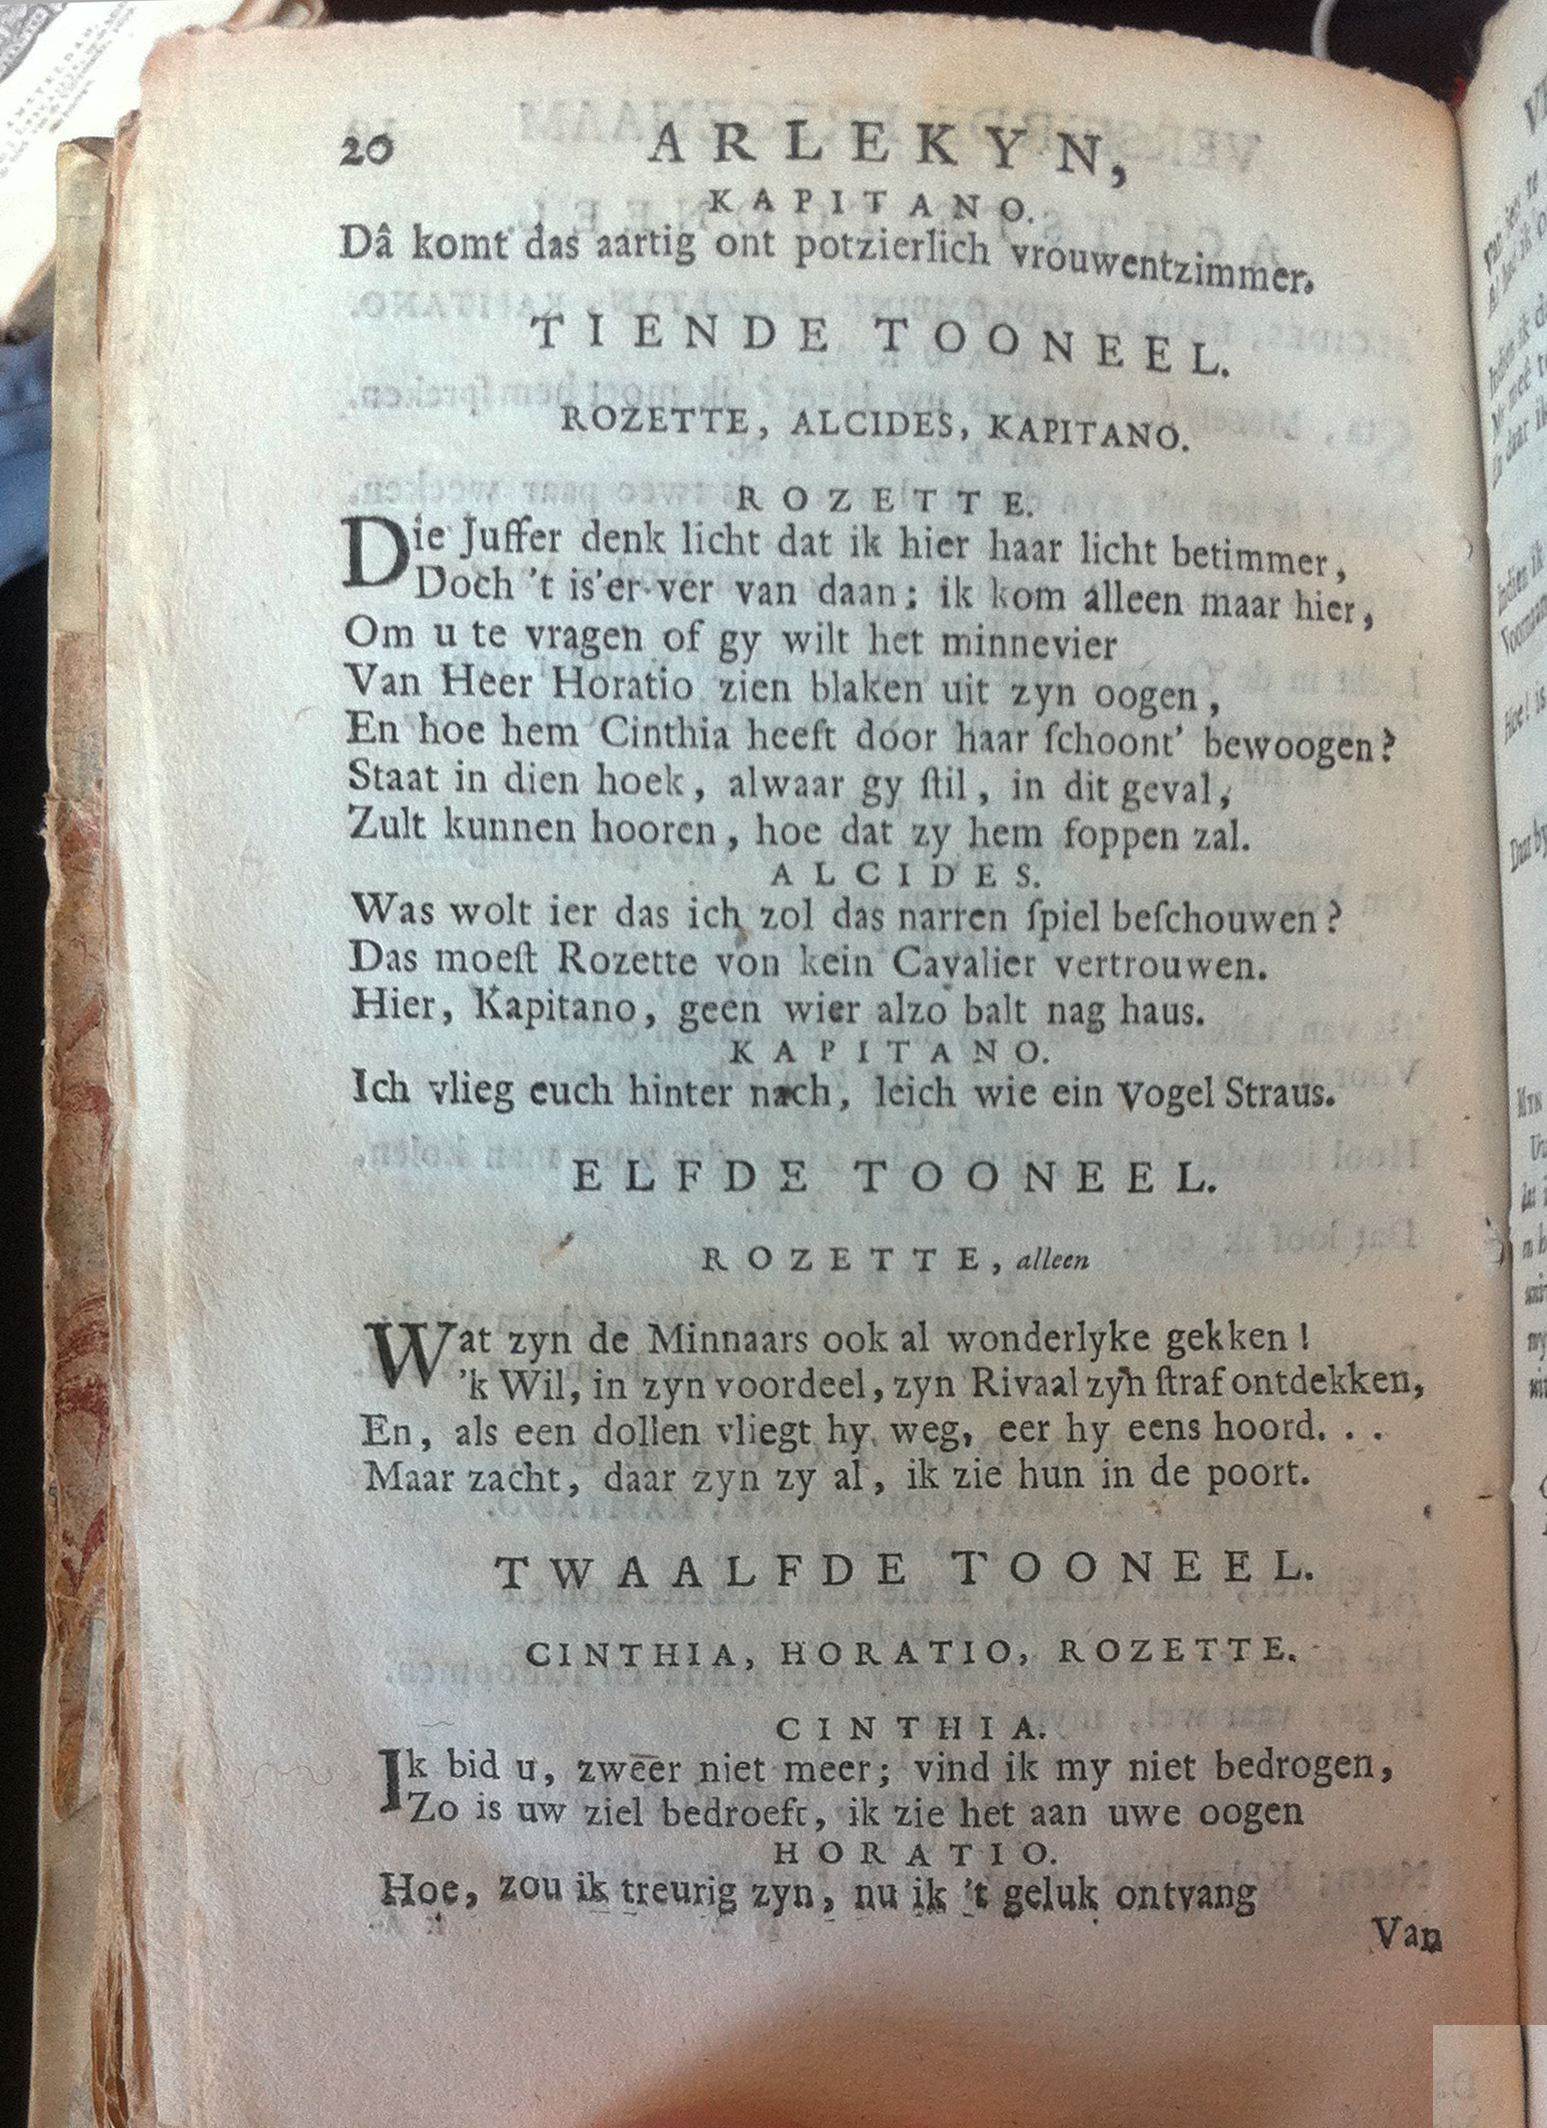 20 ARLEKYN,
KAPITANO.
Dâ komt das aartig ont potzierlich vrouwentzimmer.
TIENDE TOONEEL.
ROZETTE, ALCIDES, KAPITANO.
ROZETTE.
Die Juffer denk licht dat ik hier haar licht betimmer,
Doch 't is'er ver van daan; ik kom alleen maar hier,
Om u te vragen of gy wilt het minnevier
Van Heer Horatio zien blaken uit zyn oogen,
En hoe hem Cinthia heeft door haar ſchoont' bewoogen?
Staat in dien hoek, alwaar gy ſtil, in dit geval,
Zult kunnen hooren, hoe dat zy hem foppen zal.
ALCIDES.
Was wolt ier das ich zol das narren ſpiel beſchouwen?
Das moeſt Rozette von kein Cavalier vertrouwen.
Hier, Kapitano, geen wier alzo balt nag haus.
KAPITANO.
Ich vlieg euch hinter nach, leich wie ein Vogel Straus.
ELFDE TOONEEL.
ROZETTE, alleen
Wat zyn de Minnaars ook al wonderlyke gekken!
'k Wil, in zyn voordeel, zyn Rivaal zyn ſtraf ontdekken,
En, als een dollen vliegt hy weg, eer hy eens hoord. . .
Maar zacht, daar zyn zy al, ik zie hun in de poort.
TWAALFDE TOONEEL.
CINTHIA, HORATIO, ROZETTE.
CINTHIA.
Ik bid u, zweer niet meer; vind ik my niet bedrogen,
Zo is uw ziel bedroeft, ik zie het aan uwe oogen
HORATIO.
Hoe, zou ik treurig zyn, nu ik 't geluk ontvang
Van